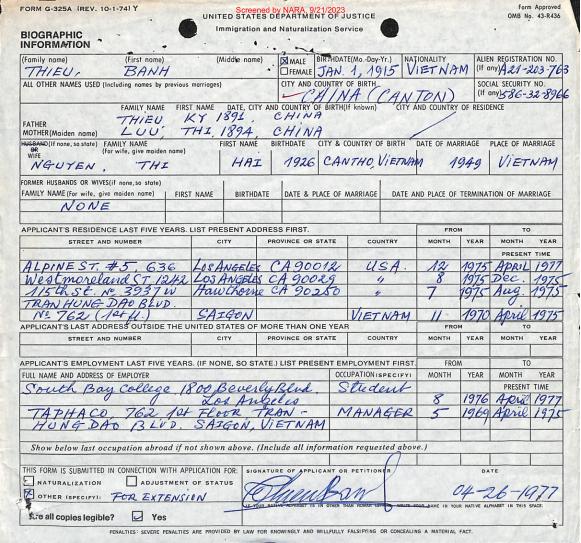 FORM G-325A (REV. 10-1-74) Y
Screened by NARA, 9/21/2023
Form Approved
OMB No. 43-R436
UNITED STATES DEPARTMENT OF JUSTICE
Immigration and Naturalization Service
BIOGRAPHIC INFORMATION
(Family name) (First name) (Middle name) MALE FEMALE BIRTHDATE (Mo.-Day-Yr.) NATIONALITY ALIEN REGISTRATION NO. (If any)
THIEU, BANH JAN. 1, 1915 VIETNAM A21-203-763
ALL OTHER NAMES USED (Including names by previous marriages) CITY AND COUNTRY OF BIRTH SOCIAL SECURITY NO. (If any)
CHINA (CANTON) 586-32-8966
FAMILY NAME FIRST NAME DATE, CITY AND COUNTRY OF BIRTH(If known) CITY AND COUNTRY OF RESIDENCE
FATHER THIEU KY 1891, CHINA
MOTHER(Maiden name) LUU, THI, 1894, CHINA
HUSBAND(If none, so state) OR WIFE FAMILY NAME (For wife, give maiden name) FIRST NAME BIRTHDATE CITY & COUNTRY OF BIRTH DATE OF MARRIAGE PLACE OF MARRIAGE
NGUYEN, THI HAI 1926 CANTHO, VIETNAM 1949 VIETNAM
FORMER HUSBANDS OR WIVES(if none, so state)
FAMILY NAME (For wife, give maiden name) FIRST NAME BIRTHDATE DATE & PLACE OF MARRIAGE DATE AND PLACE OF TERMINATION OF MARRIAGE
NONE
APPLICANT'S RESIDENCE LAST FIVE YEARS. LIST PRESENT ADDRESS FIRST. FROM TO
STREET AND NUMBER CITY PROVINCE OR STATE COUNTRY MONTH YEAR MONTH YEAR
PRESENT TIME
ALPINE ST. #5, 636 LOS ANGELES CA 90012 USA. 12 1975 April 1977
Westmoreland ST 1242 LOS ANGELES CA 90029 " 8 1975 Dec. 1975
115th St. No 3937 W Hawthorne CA 90250 " 7 1975 Aug. 1975
TRAN HUNG DAO BLVD.
No 762 (1st fl.) SAIGON VIETNAM 11 1970 April 1975
APPLICANT'S LAST ADDRESS OUTSIDE THE UNITED STATES OF MORE THAN ONE YEAR
STREET AND NUMBER CITY PROVINCE OR STATE COUNTRY MONTH YEAR MONTH YEAR
APPLICANT'S EMPLOYMENT LAST FIVE YEARS. (IF NONE, SO STATE.) LIST PRESENT EMPLOYMENT FIRST. FROM TO
FULL NAME AND ADDRESS OF EMPLOYER OCCUPATION (SPECIFY) MONTH YEAR MONTH YEAR
PRESENT TIME
South Bay College 1800 Beverly Blvd. Student
Los Angeles 8 1976 April 1977
TAPHACO, 762 1st FLOOR TRAN- MANAGER 5 1969 April 1975
HUNG DAO BLVD. SAIGON, VIETNAM
Show below last occupation abroad if not shown above. (Include all information requested above.)
THIS FORM IS SUBMITTED IN CONNECTION WITH APPLICATION FOR: SIGNATURE OF APPLICANT OR PETITIONER DATE
NATURALIZATION ADJUSTMENT OF STATUS
OTHER (SPECIFY): FOR EXTENSION 04-26-1977
Are all copies legible? Yes
PENALTIES: SEVERE PENALTIES ARE PROVIDED BY LAW FOR KNOWINGLY AND WILLFULLY FALSIFYING OR CONCEALING A MATERIAL FACT.